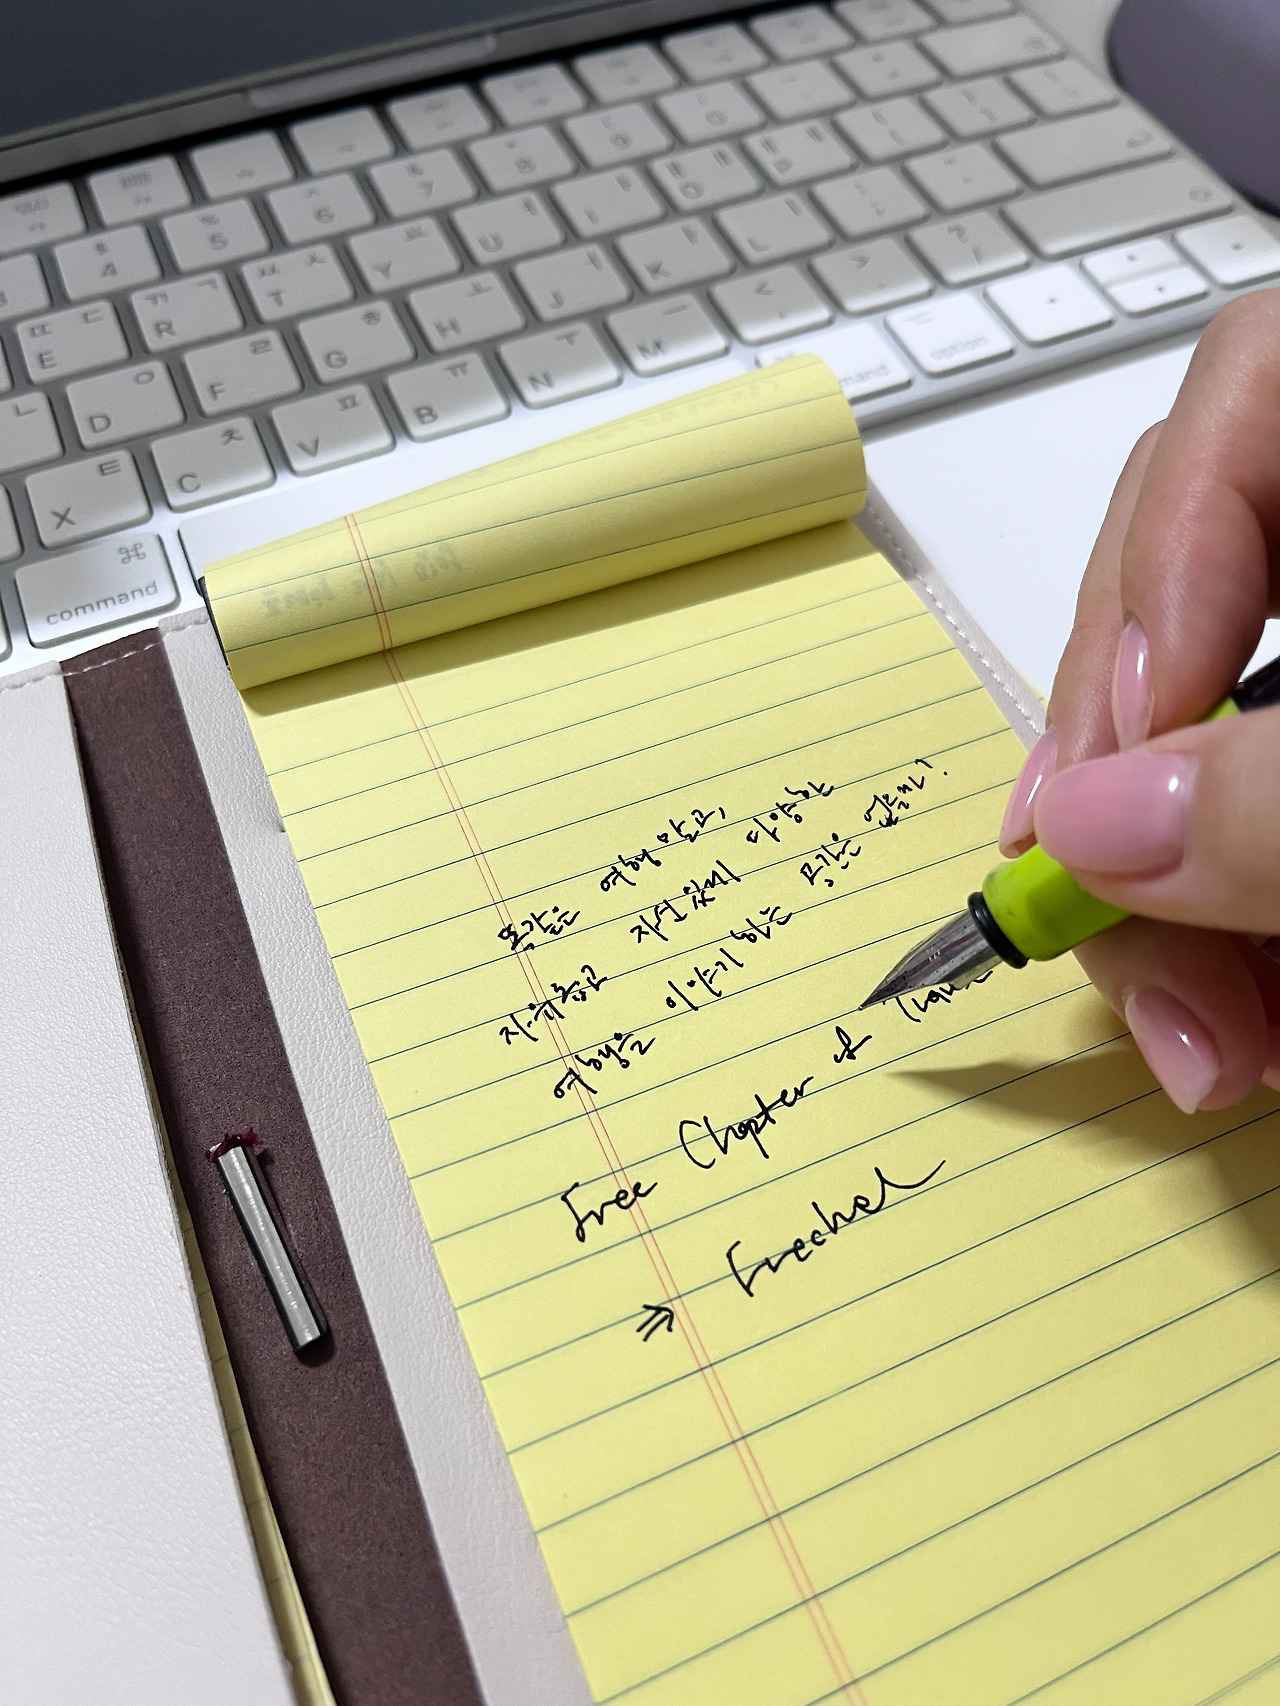 똑같은 여행 말고,
자유롭고 자연스레 다양한
여행을 이야기하는 공간은 없을까?
Free Chapter of Travel
⇒ Frechal
command
option
E
R
T
Y
U
D
F
G
H
J
K
L
X
C
V
B
N
M